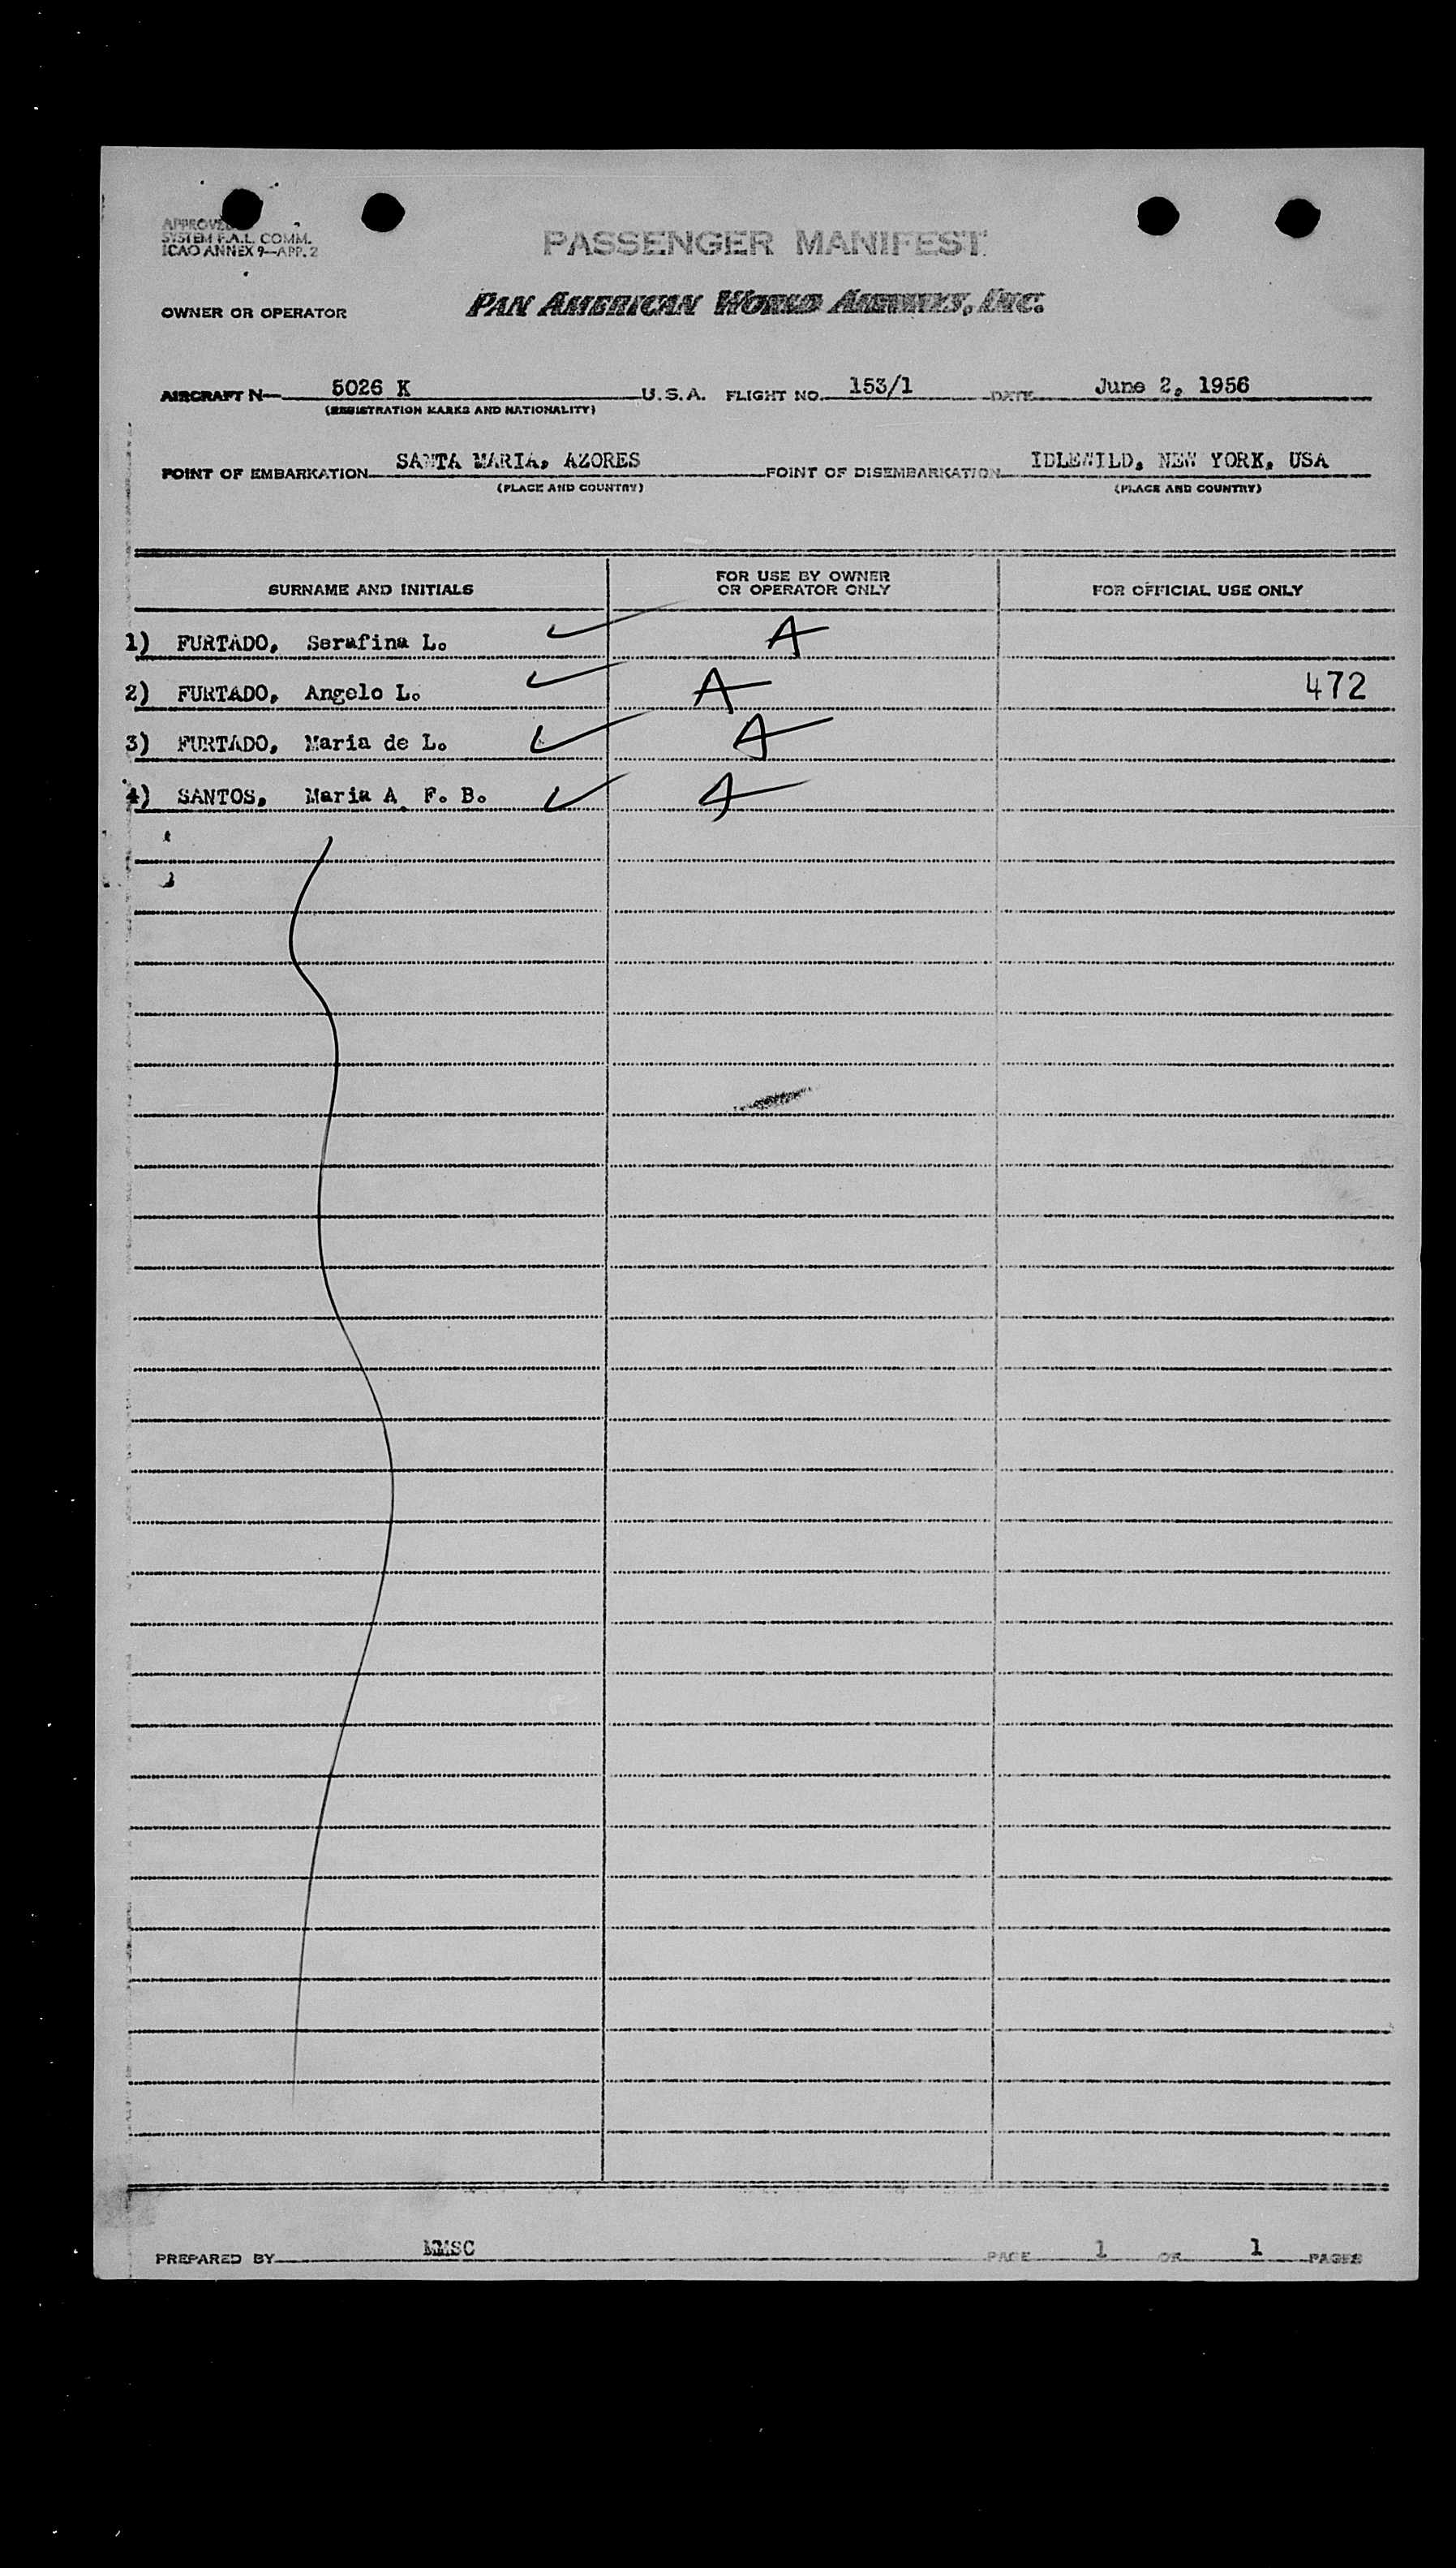 APPROVED
SYSTEM F.A.L. COMM.
ICAO ANNEX 9—APP. 2
PASSENGER MANIFEST
OWNER OR OPERATOR PAN AMERICAN WORLD AIRWAYS, INC.
AIRCRAFT N— 5026 K U.S.A. FLIGHT NO. 153/1 DATE June 2, 1956
(REGISTRATION MARKS AND NATIONALITY)
POINT OF EMBARKATION SANTA MARIA, AZORES POINT OF DISEMBARKATION IDLEWILD, NEW YORK, USA
(PLACE AND COUNTRY) (PLACE AND COUNTRY)
SURNAME AND INITIALS FOR USE BY OWNER OR OPERATOR ONLY FOR OFFICIAL USE ONLY
1) FURTADO, Serafina L. A
2) FURTADO, Angelo L. A 472
3) FURTADO, Maria de L. A
4) SANTOS, Maria A. F. B. A
PREPARED BY MMSC PAGE 1 OF 1 PAGES